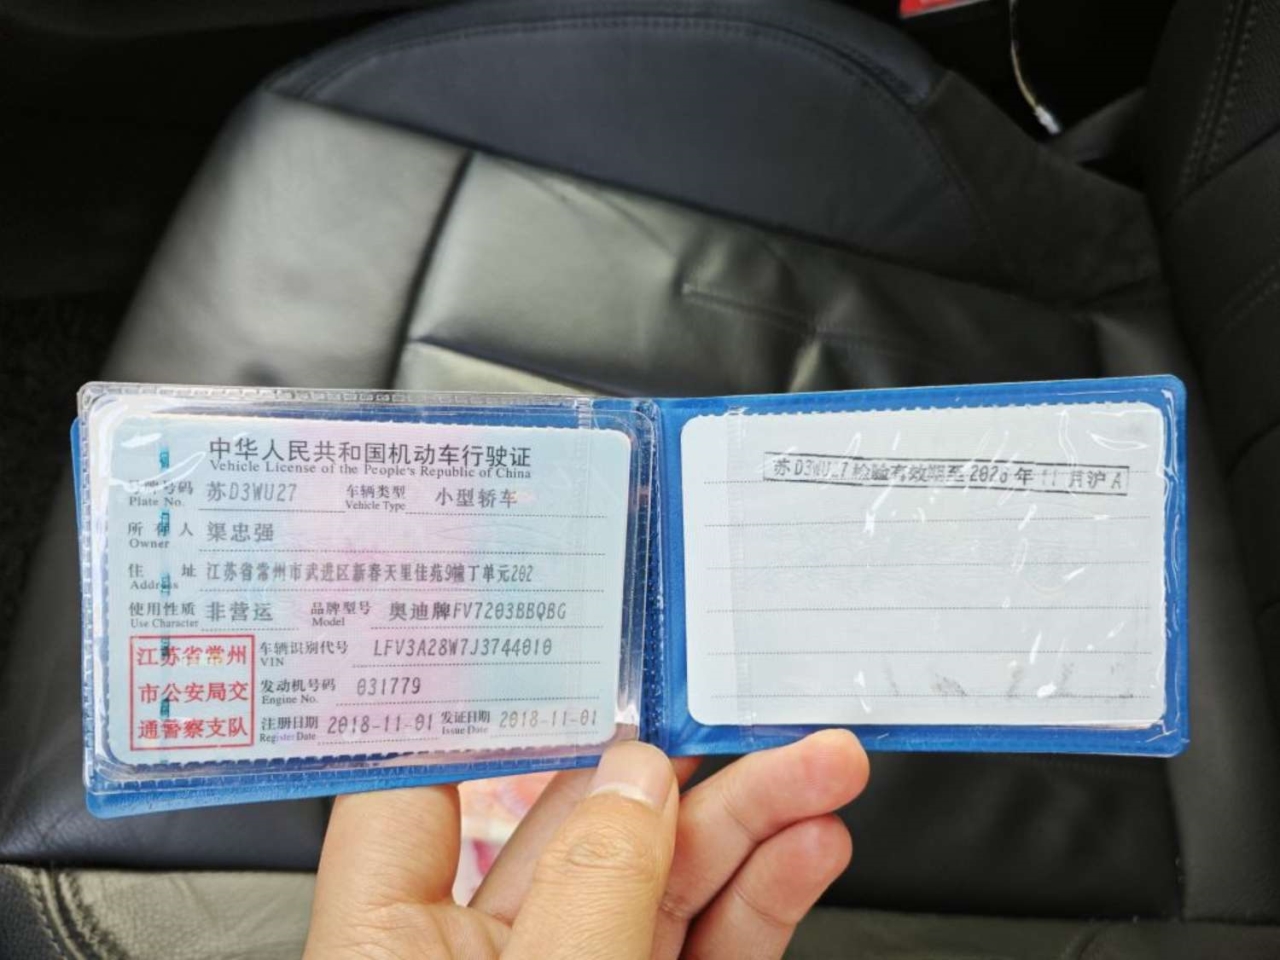 中华人民共和国机动车行驶证
Vehicle License of the People's Republic of China
号牌号码 苏D3WU27 车辆类型 小型轿车
Plate No. Vehicle Type
所有人 渠忠强
Owner
住址 江苏省常州市武进区新春天里佳苑9幢丁单元202
Address
使用性质 非营运 品牌型号 奥迪牌FV7203BBQBG
Use Character Model
江苏省常州 车辆识别代号 LFV3A28W7J3744010
VIN
市公安局交 发动机号码 031779
Engine No.
通警察支队 注册日期 2018-11-01 发证日期 2018-11-01
Register Date Issue Date
苏D3WU27检验有效期至 年11月沪A